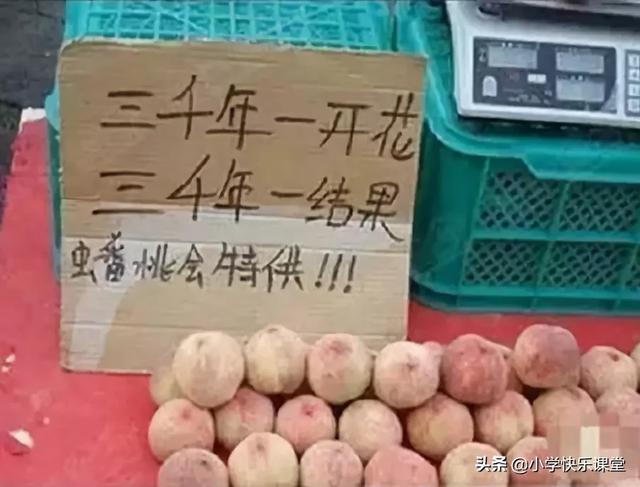 三千年一开花
三千年一结果
蟠桃会特供!!!
头条 @小学快乐课堂